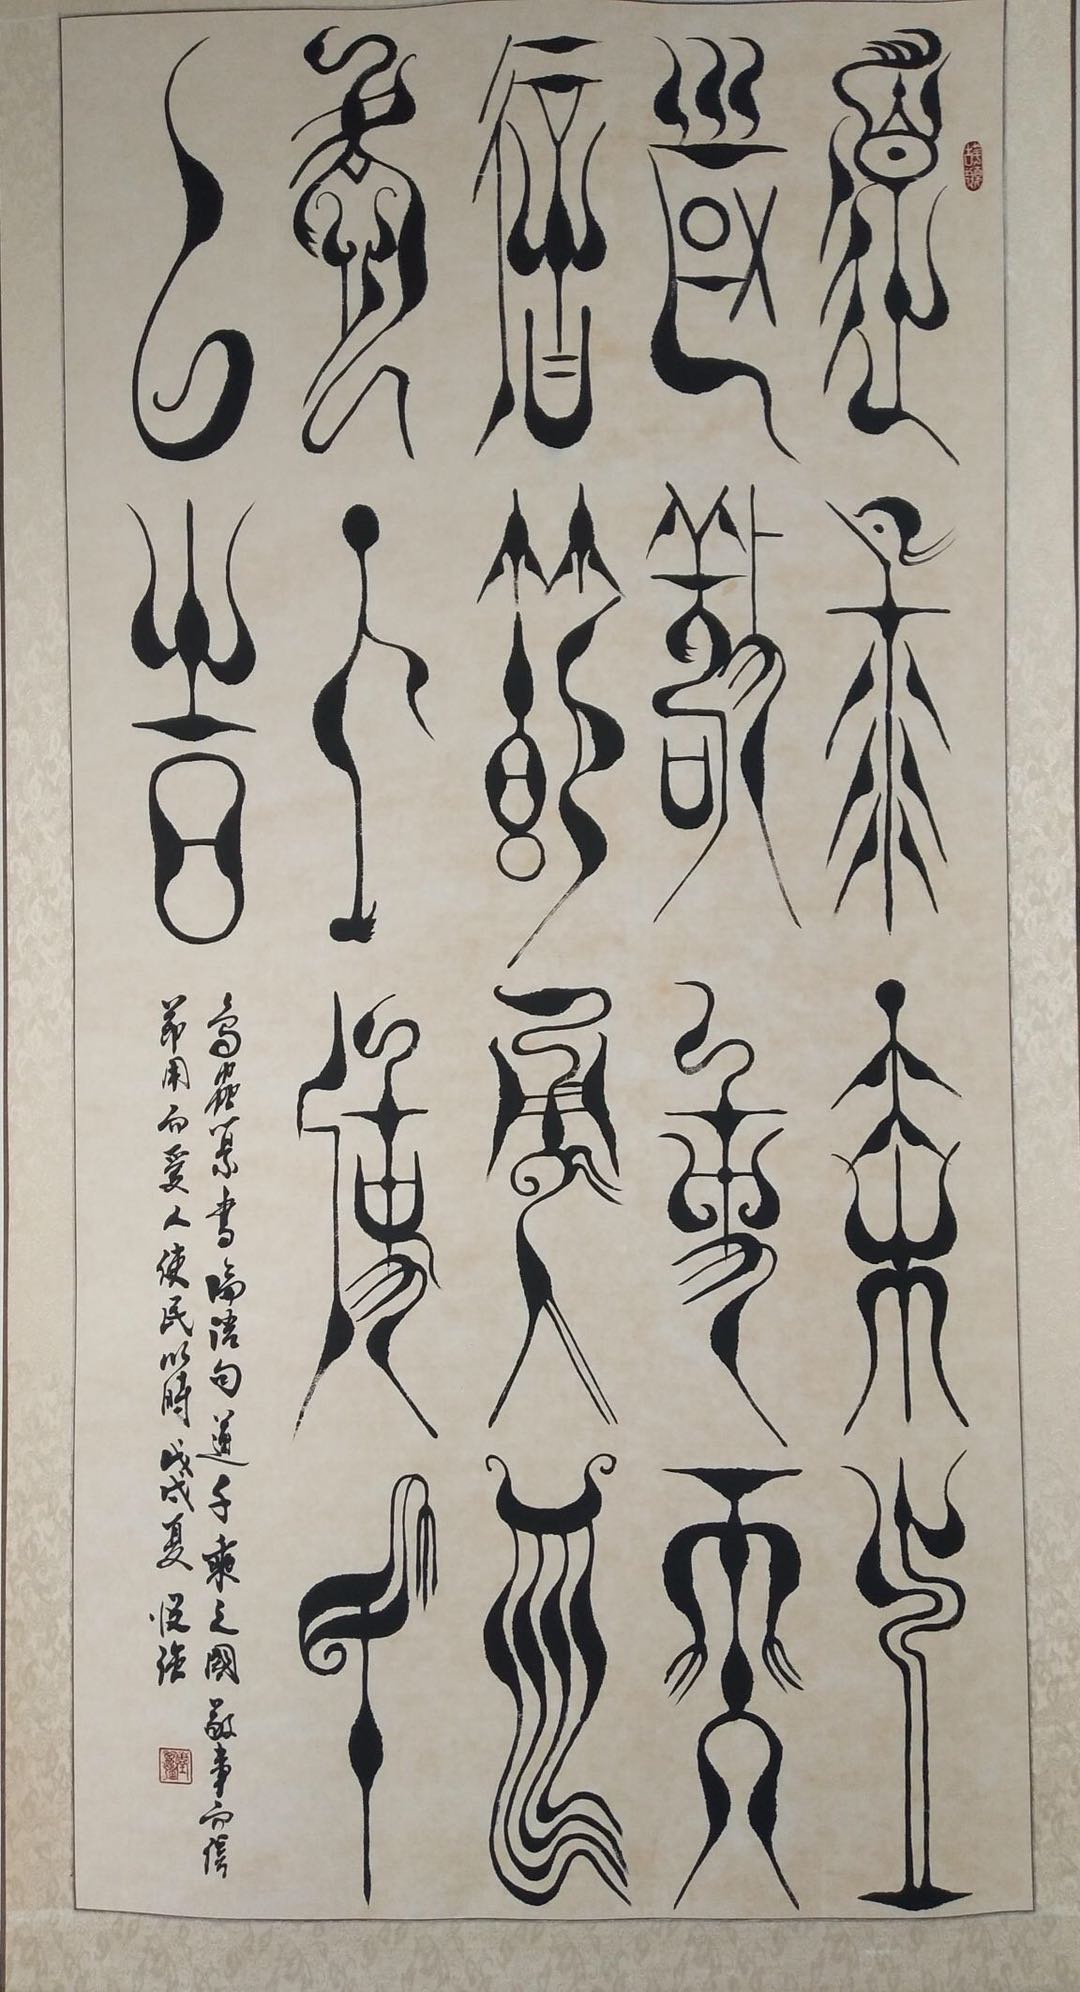 道千乘之
國敬事而
信節用而
愛人使民
以時
鳥蟲篆書論語句道千乘之國敬事而信
節用而愛人使民以時戊戌夏